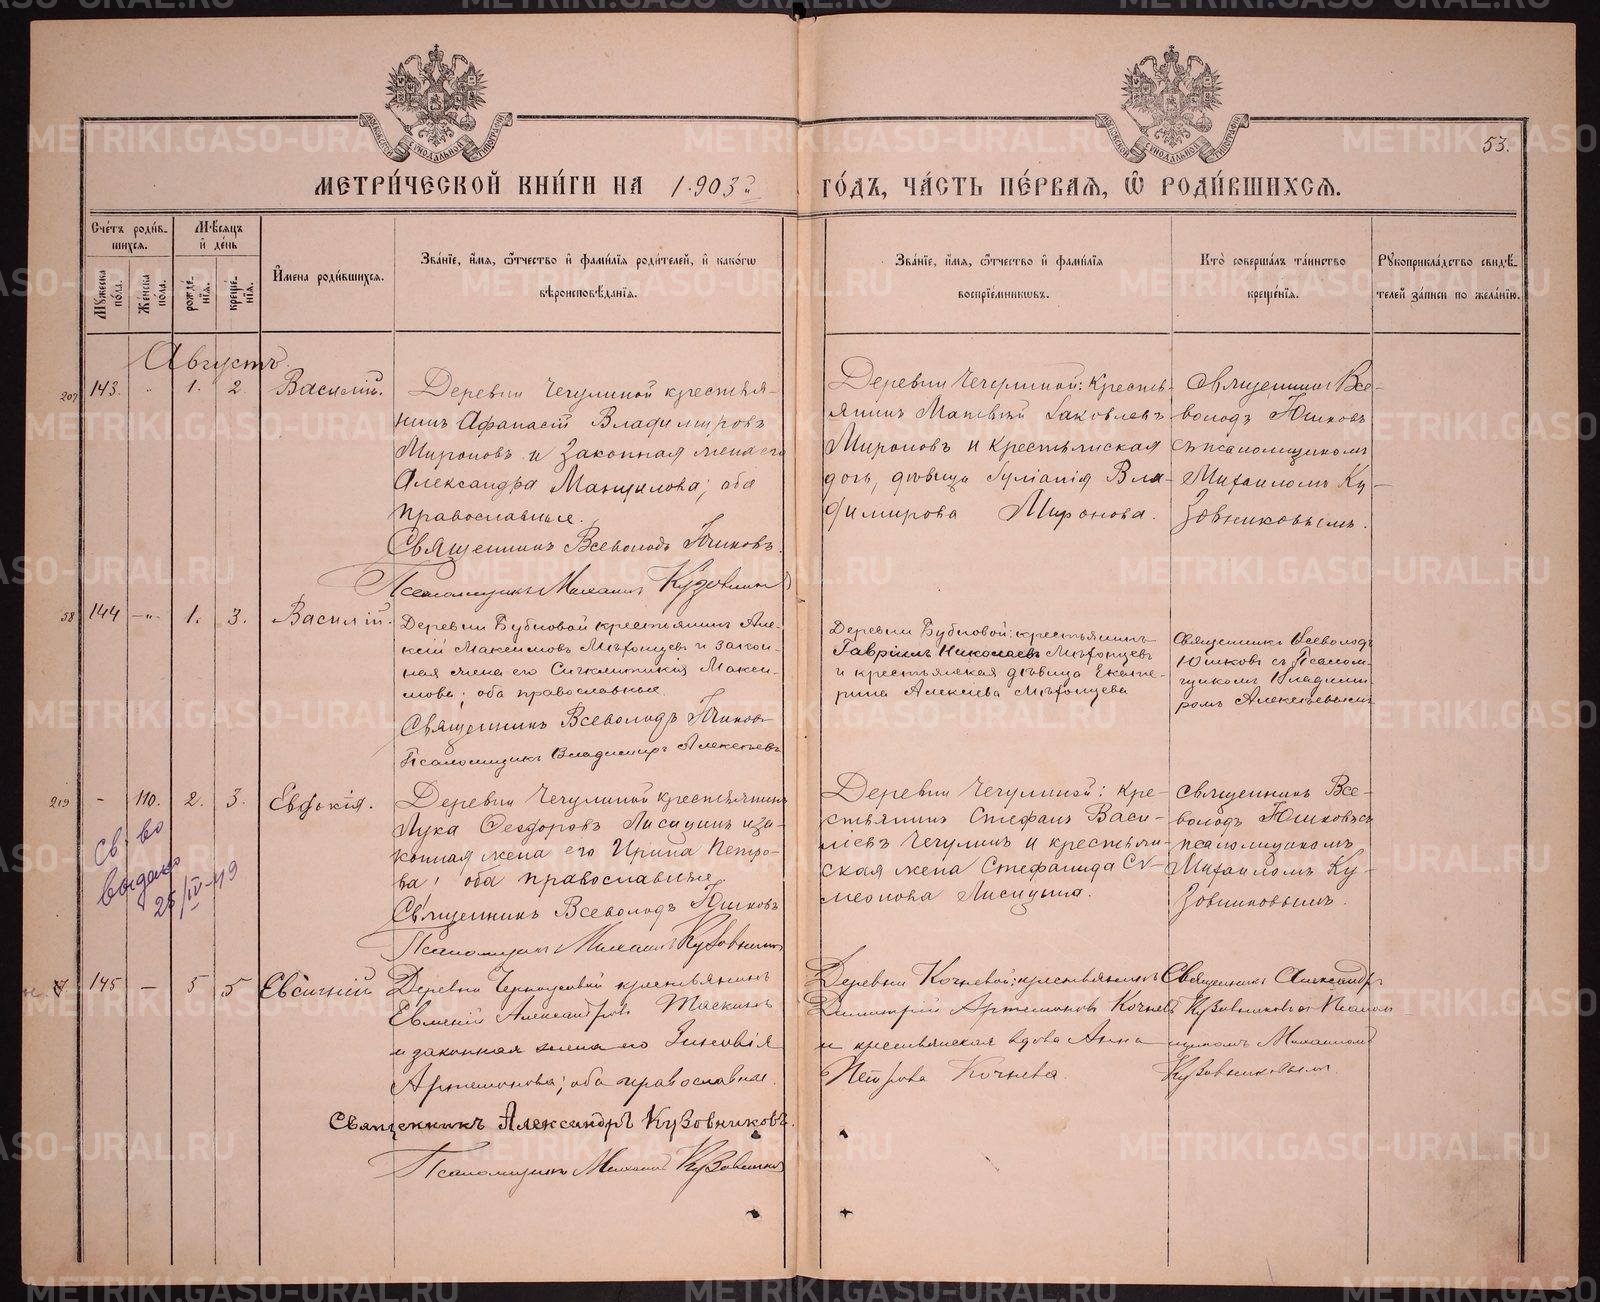 53.
МЕТРИ́ЧЕСКОЙ КНИ́ГИ НА 1903й ГО́ДЪ, ЧА́СТЬ ПЕ́РВАЯ, Ѡ РОДИ́ВШИХСЯ.
Сче́тъ роди́в-
шихся.
Мѣсяцъ
и де́нь
Му́жеска
по́ла.
Же́нска
по́ла.
рожде́-
нія.
креще́-
нія.
Имена роди́вшихся.
Зва́ніе, и́мя, ѻ́тчество и фами́лія роди́телей, и како́гѡ
вѣроисповѣ́данія.
Зва́ніе, и́мя, ѻ́тчество и фами́лія
воспріе́мниковъ.
Кто̀ соверша́лъ та́инство
креще́нія.
Рукоприкла́дство свидѣ́-
телей за́писи по жела́нію.
Августъ.
207 143. " 1. 2 Василій.
Деревни Чечулиной крестья-
нинъ Афанасій Владиміровъ
Мироновъ и законная жена его
Александра Мануилова; оба
православные.
Священникъ Всеволодъ Юшковъ.
Псаломщикъ Михаилъ Кузовник
Деревни Чечулиной: кресть-
янинъ Матвѣй Іаковлевъ
Мироновъ и крестьянская
дочь, дѣвица Іуліанія Вла-
димирова Миронова.
Священникъ Все-
володъ Юшковъ
съ псаломщикомъ
Михаиломъ Ку-
зовниковымъ.
58 144 -"- 1. 3. Василій.
Деревни Бубновой крестьянинъ Але-
ксій Максимовъ Мѣхонцевъ и закон-
ная жена его Сигклитикія Макси-
мова; оба православные.
Священникъ Всеволодъ Юшковъ
Псаломщикъ Владимиръ Алексѣевъ
Деревни Бубновой: крестьянинъ
Гавріилъ Николаевъ Мѣхонцевъ
и крестьянская дѣвица Екате-
рина Алексіева Мѣхонцева
Священникъ Всеволодъ
Юшковъ съ Псалом-
щикомъ Владими-
ромъ Алексѣевымъ
219 - 110. 2. 3. Евдокія.
Св-во
выдано
25/IV-49
Деревни Чечулиной крестьянинъ
Лука Ѳеодоровъ Лисицинъ и за-
конная жена его Ирина Петро-
ва; оба православные.
Священникъ Всеволодъ Юшковъ
Псаломщикъ Михаилъ Кузовник
Деревни Чечулиной: кре-
стьянинъ Стефанъ Васи-
ліевъ Чечулинъ и крестьян-
ская жена Стефанида Си-
меонова Лисицына.
Священникъ Все-
володъ Юшковъ съ
псаломщикомъ
Михаиломъ Ку-
зовниковымъ.
145 - 5 5 Евсигній
Деревни Черноусовой крестьянинъ
Евмѣній Александровъ Таскинъ
и законная жена его Зиновія
Артемонова; оба православные.
Священникъ Александръ Кузовниковъ.
Псаломщикъ Михаилъ Кузовник
Деревни Кочневой: крестьянинъ
Димитрій Артемоновъ Кочневъ
и крестьянская вдова Анна
Петрова Кочнева.
Священникъ Александръ
Кузовниковъ съ Псалом
щикомъ Михаиломъ
Кузовниковымъ.
METRIKI.GASO-URAL.RU